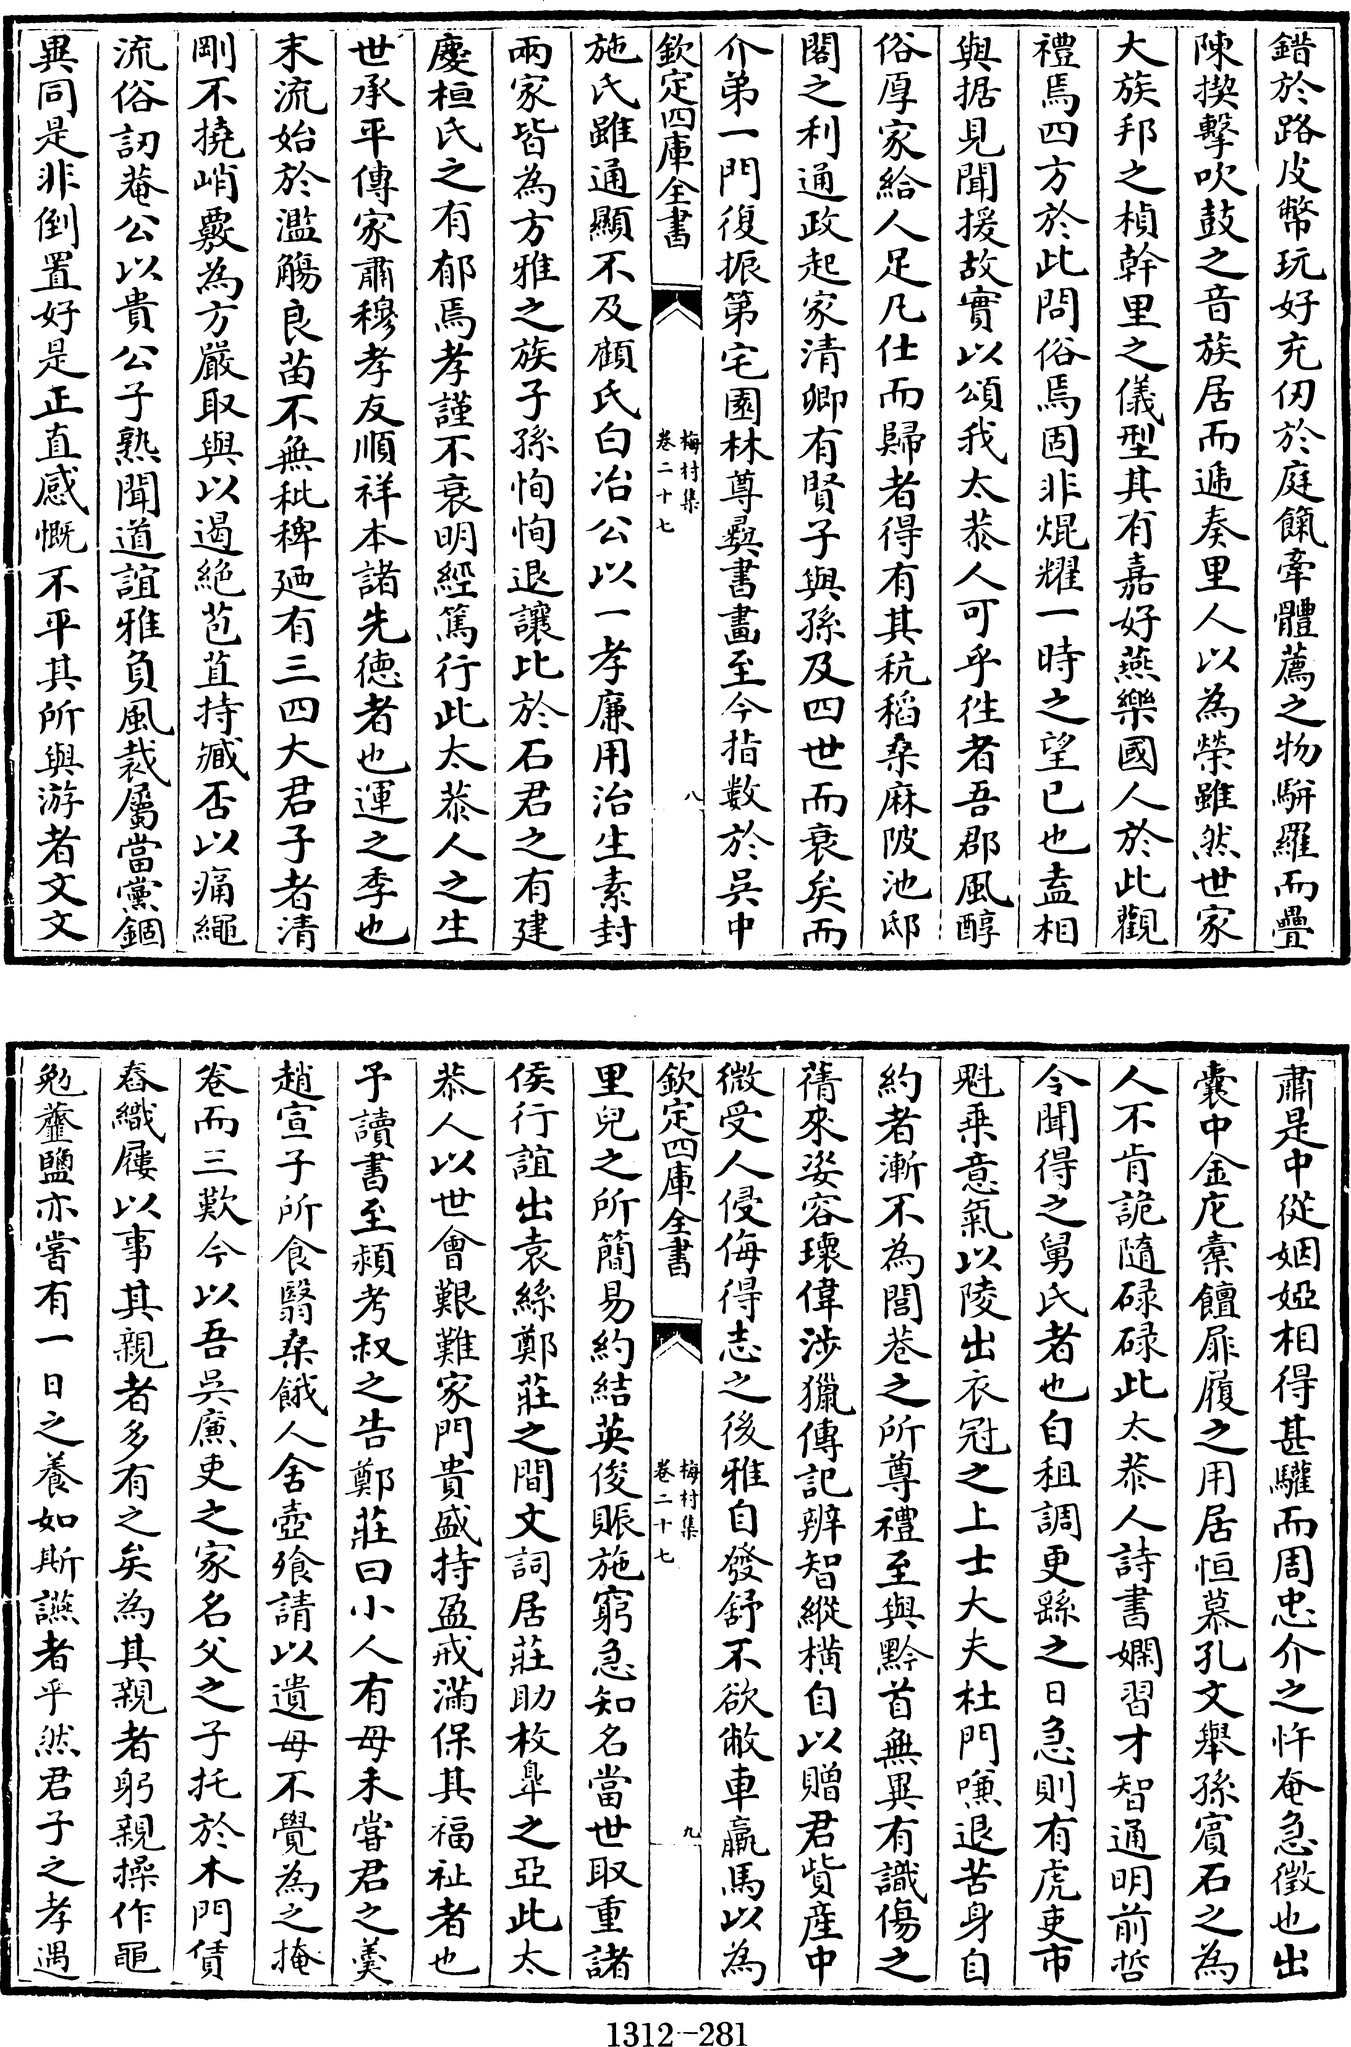 錯於路皮幣玩好充仞於庭餼牽體薦之物駢羅而疊
陳摐擊吹鼓之音族居而遞奏里人以為榮雖然世家
大族邦之楨幹里之儀型其有嘉好燕樂國人於此觀
禮焉四方於此問俗焉固非焜耀一時之望已也盍相
與据見聞援故實以頌我太恭人可乎徃者吾郡風醇
俗厚家給人足凡仕而歸者得有其秔稻桑麻陂池邸
閣之利通政起家清卿有賢子與孫及四世而衰矣而
介弟一門復振第宅園林尊彞書畫至今指數於吳中
欽定四庫全書
梅村集
卷二十七
八
施氏雖通顯不及顧氏白冶公以一孝廉用治生素封
兩家皆為方雅之族子孫恂恂退讓比於石君之有建
慶桓氏之有郁焉孝謹不衰明經篤行此太恭人之生
世承平傳家肅穆孝友順祥本諸先德者也運之季也
末流始於濫觴良苗不無秕稗廼有三四大君子者清
剛不撓峭覈為方嚴取與以遏絶苞苴持臧否以痛繩
流俗訒菴公以貴公子熟聞道誼雅負風裁屬當黨錮
異同是非倒置好是正直感慨不平其所與游者文文
肅是中從姻婭相得甚驩而周忠介之忤奄急徵也出
囊中金庀槖饘屝履之用居恒慕孔文舉孫賓石之為
人不肯詭隨碌碌此太恭人詩書嫻習才智通明前哲
令聞得之舅氏者也自租調更繇之日急則有虎吏市
魁乗意氣以陵出衣冠之上士大夫杜門嗛退苦身自
約者漸不為閭巷之所尊禮至與黔首無異有識傷之
蒨來姿容瓌偉涉獵傳記辨智縱橫自以贈君貲産中
微受人侵侮得志之後雅自發舒不欲敝車羸馬以為
欽定四庫全書
梅村集
卷二十七
九
里兒之所簡易約結英俊賑施窮急知名當世取重諸
侯行誼出袁絲鄭莊之間文詞居莊助枚臯之亞此太
恭人以世會艱難家門貴盛持盈戒滿保其福祉者也
予讀書至潁考叔之告鄭莊曰小人有母未嘗君之羮
趙宣子所食翳桑餓人舍壺飱請以遺母不覺為之掩
卷而三歎今以吾吳廉吏之家名父之子托於木門賃
舂織屨以事其親者多有之矣為其親者躬親操作黽
勉虀鹽亦嘗有一日之養如斯讌者乎然君子之孝遇
1312-281